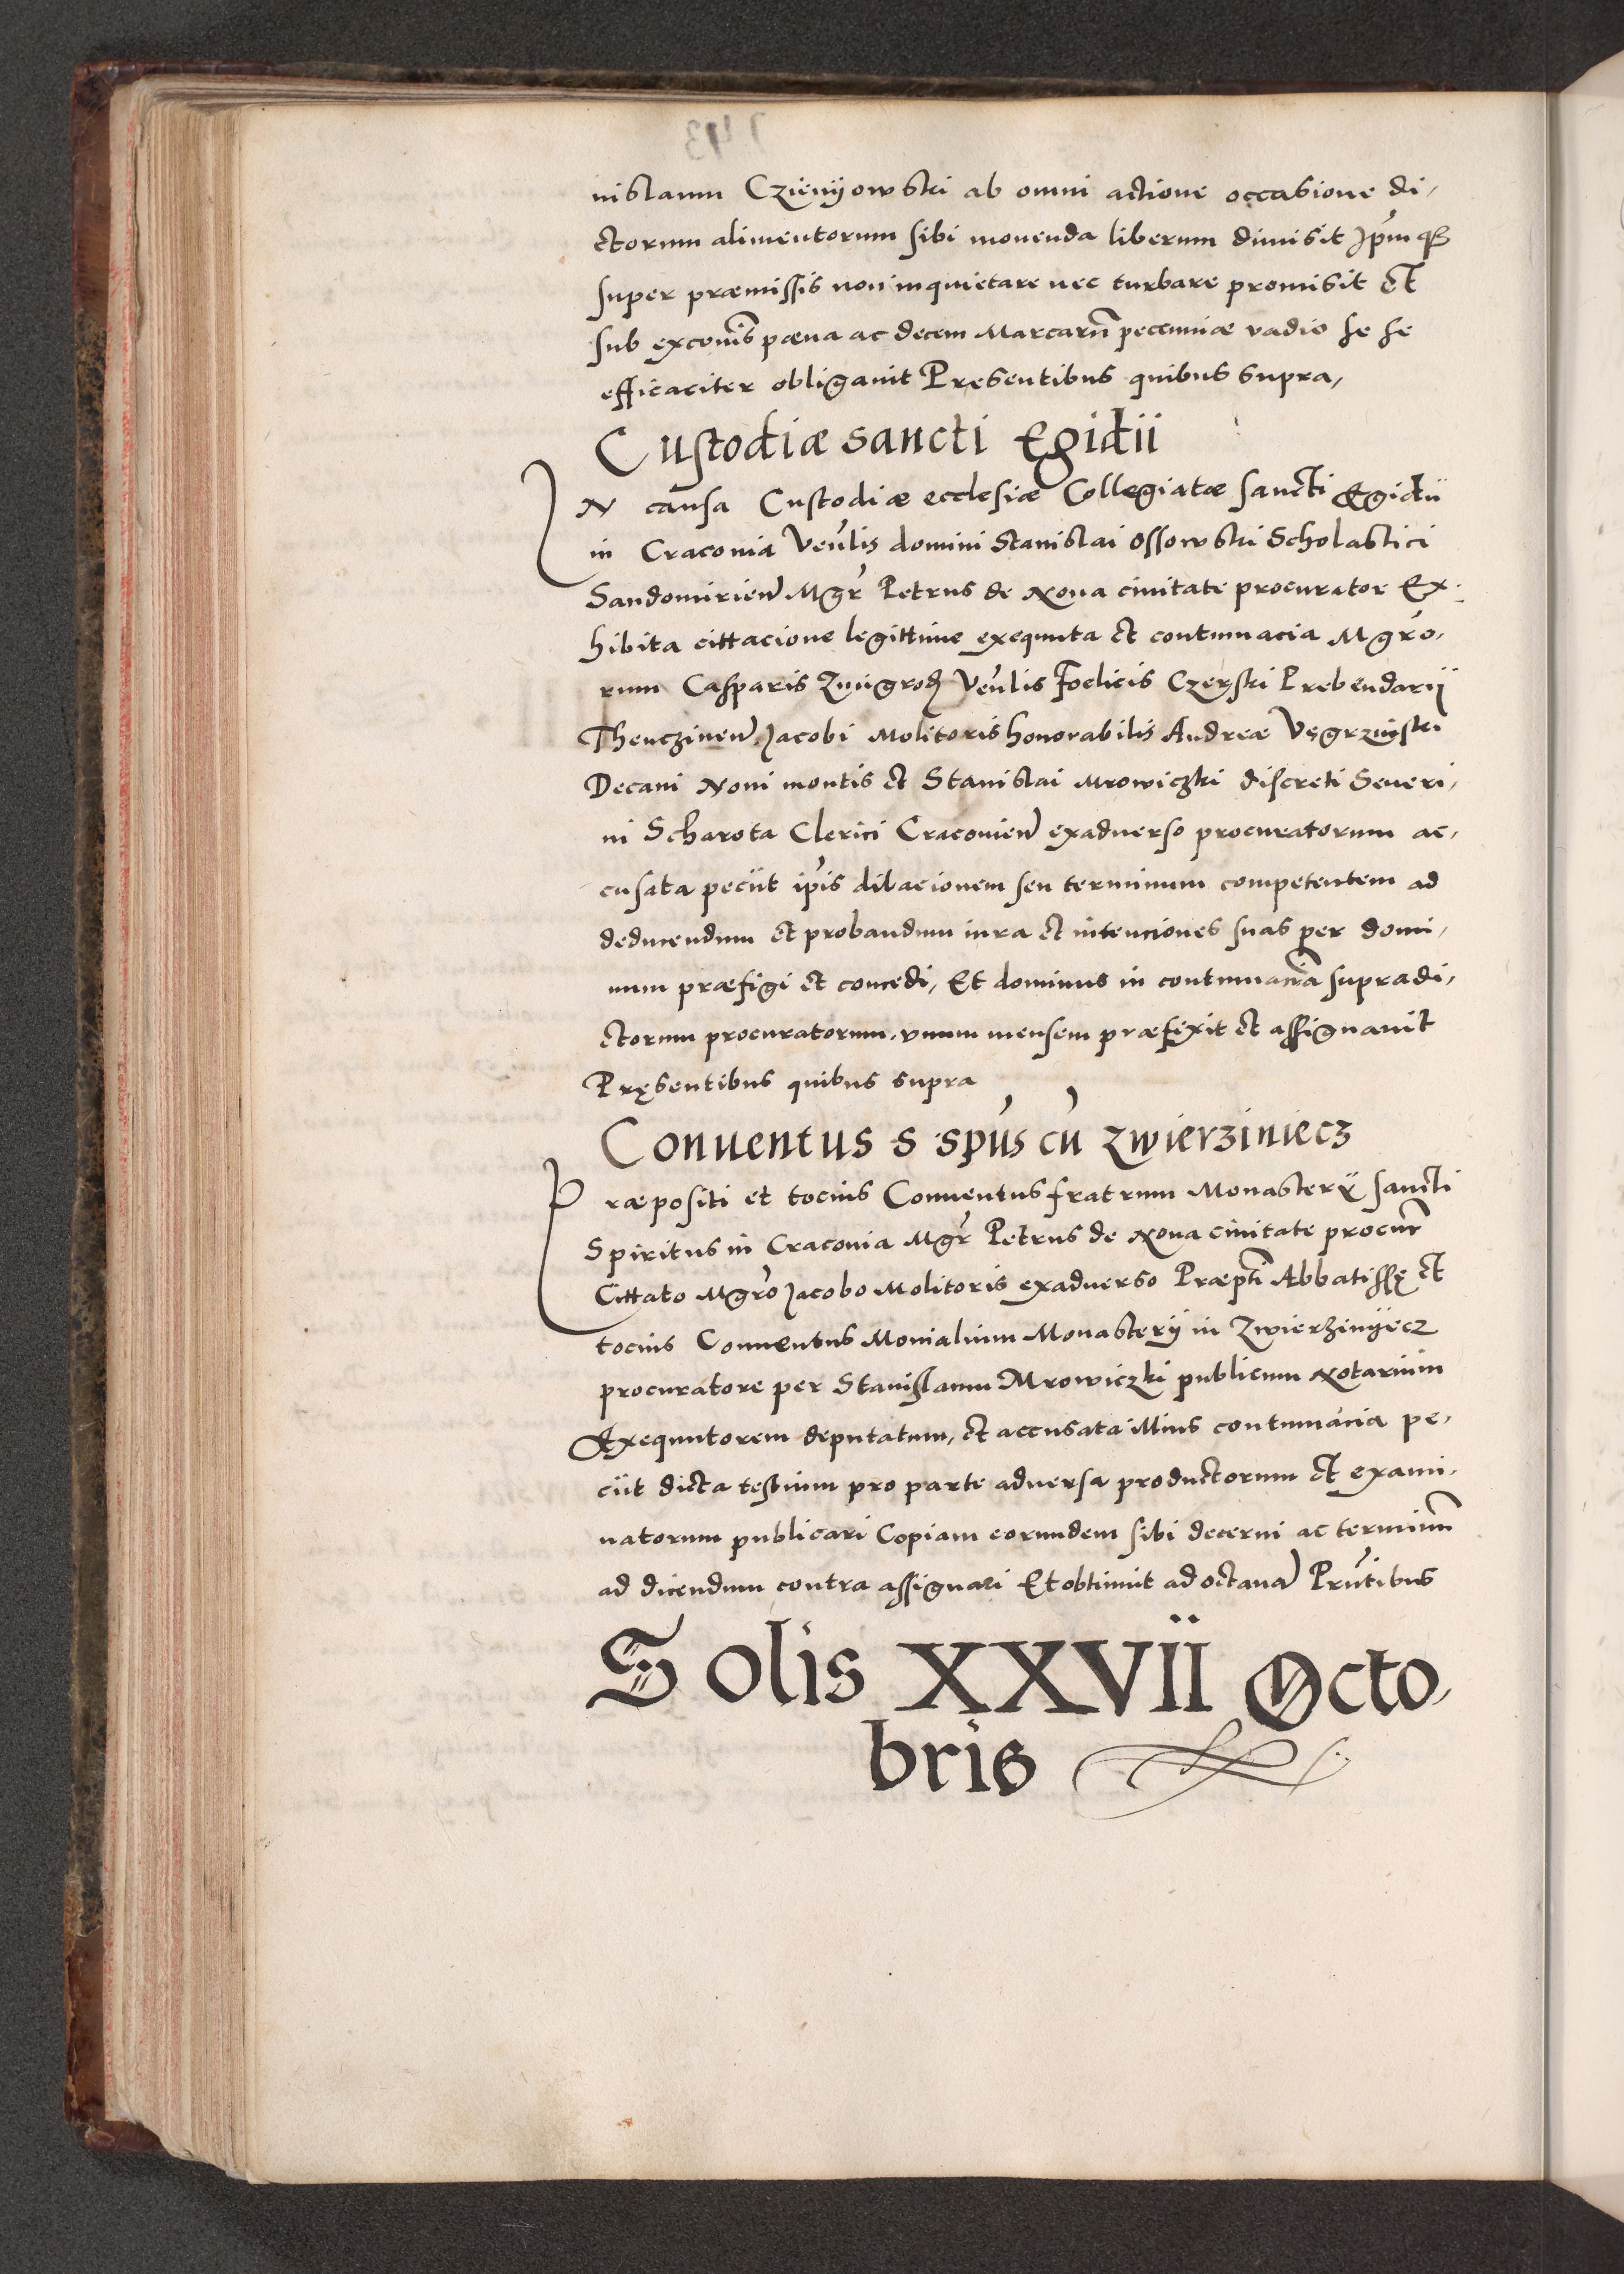 nislaum Czienijowski ab omni actione occasione di,
ctorum alimentorum sibi mouenda liberum dimisit Ipḿ qȝ
super præmissis non inquietare nec turbare promisit Et
sub excom̃is pæna ac decem Marcarũ pecuniæ vadio se se
efficaciter obligauit Pręsentibus quibus supra,
Custodiæ sancti Egidii
IN causa Custodiæ ecclesiæ Collegiatæ sancti Egidii
in Craconia Veńlis domini Stanislai Ossowski Scholastici
Sandomirień Mgŕ Petrus de Noua ciuitate procurator Ex,
hibita cittacione legittime exequuta et contumacia Mgŕo,
rum Casparis Zmigrod Veńlis Foelicis Czerski Prebendarij
Thenczinen Jacobi Molitoris honorabilis Andreæ Vęgrzinski
Decani Noui montis et Stanislai Mrowiczki discreti Seueri,
ni Scharota Clerici Craconień exaduerso procuratorum ac,
cusata peciit ipis dilacionem seu terminum competentem ad
deducendum et probandum iura et intenciones suas per domi,
num præfigi et concedi, Et dominus in contumaciã supradi,
ctorum procuratorum, vnum mensem præfixit et assignauit
Pręsentibus quibus supra
Conuentus S spús cu zwierziniecz
Præpositi et tocius Conuentus fratrum Monasterij sancti
Spiritus in Craconia Mgŕ Petrus de Noua ciuitate procur̃
Cittato Mgŕo Jacobo Molitoris exaduerso Præpti Abbatissę et
tocius Conuentus Monialium Monasterij in Zwierzinijecz
procuratore per Stanislaum Mrowiczki publicum Notarium
Exequutorem deputatum, et accusata illius contumacia pe,
ciit dicta testium pro parte aduersa productorum et exami,
natorum publicari Copiam eorumdem sibi decerni ac terminũ
ad dicendum contra assignari Et obtinuit ad octauã Prńtibus
Solis XXVII Octo,
bris